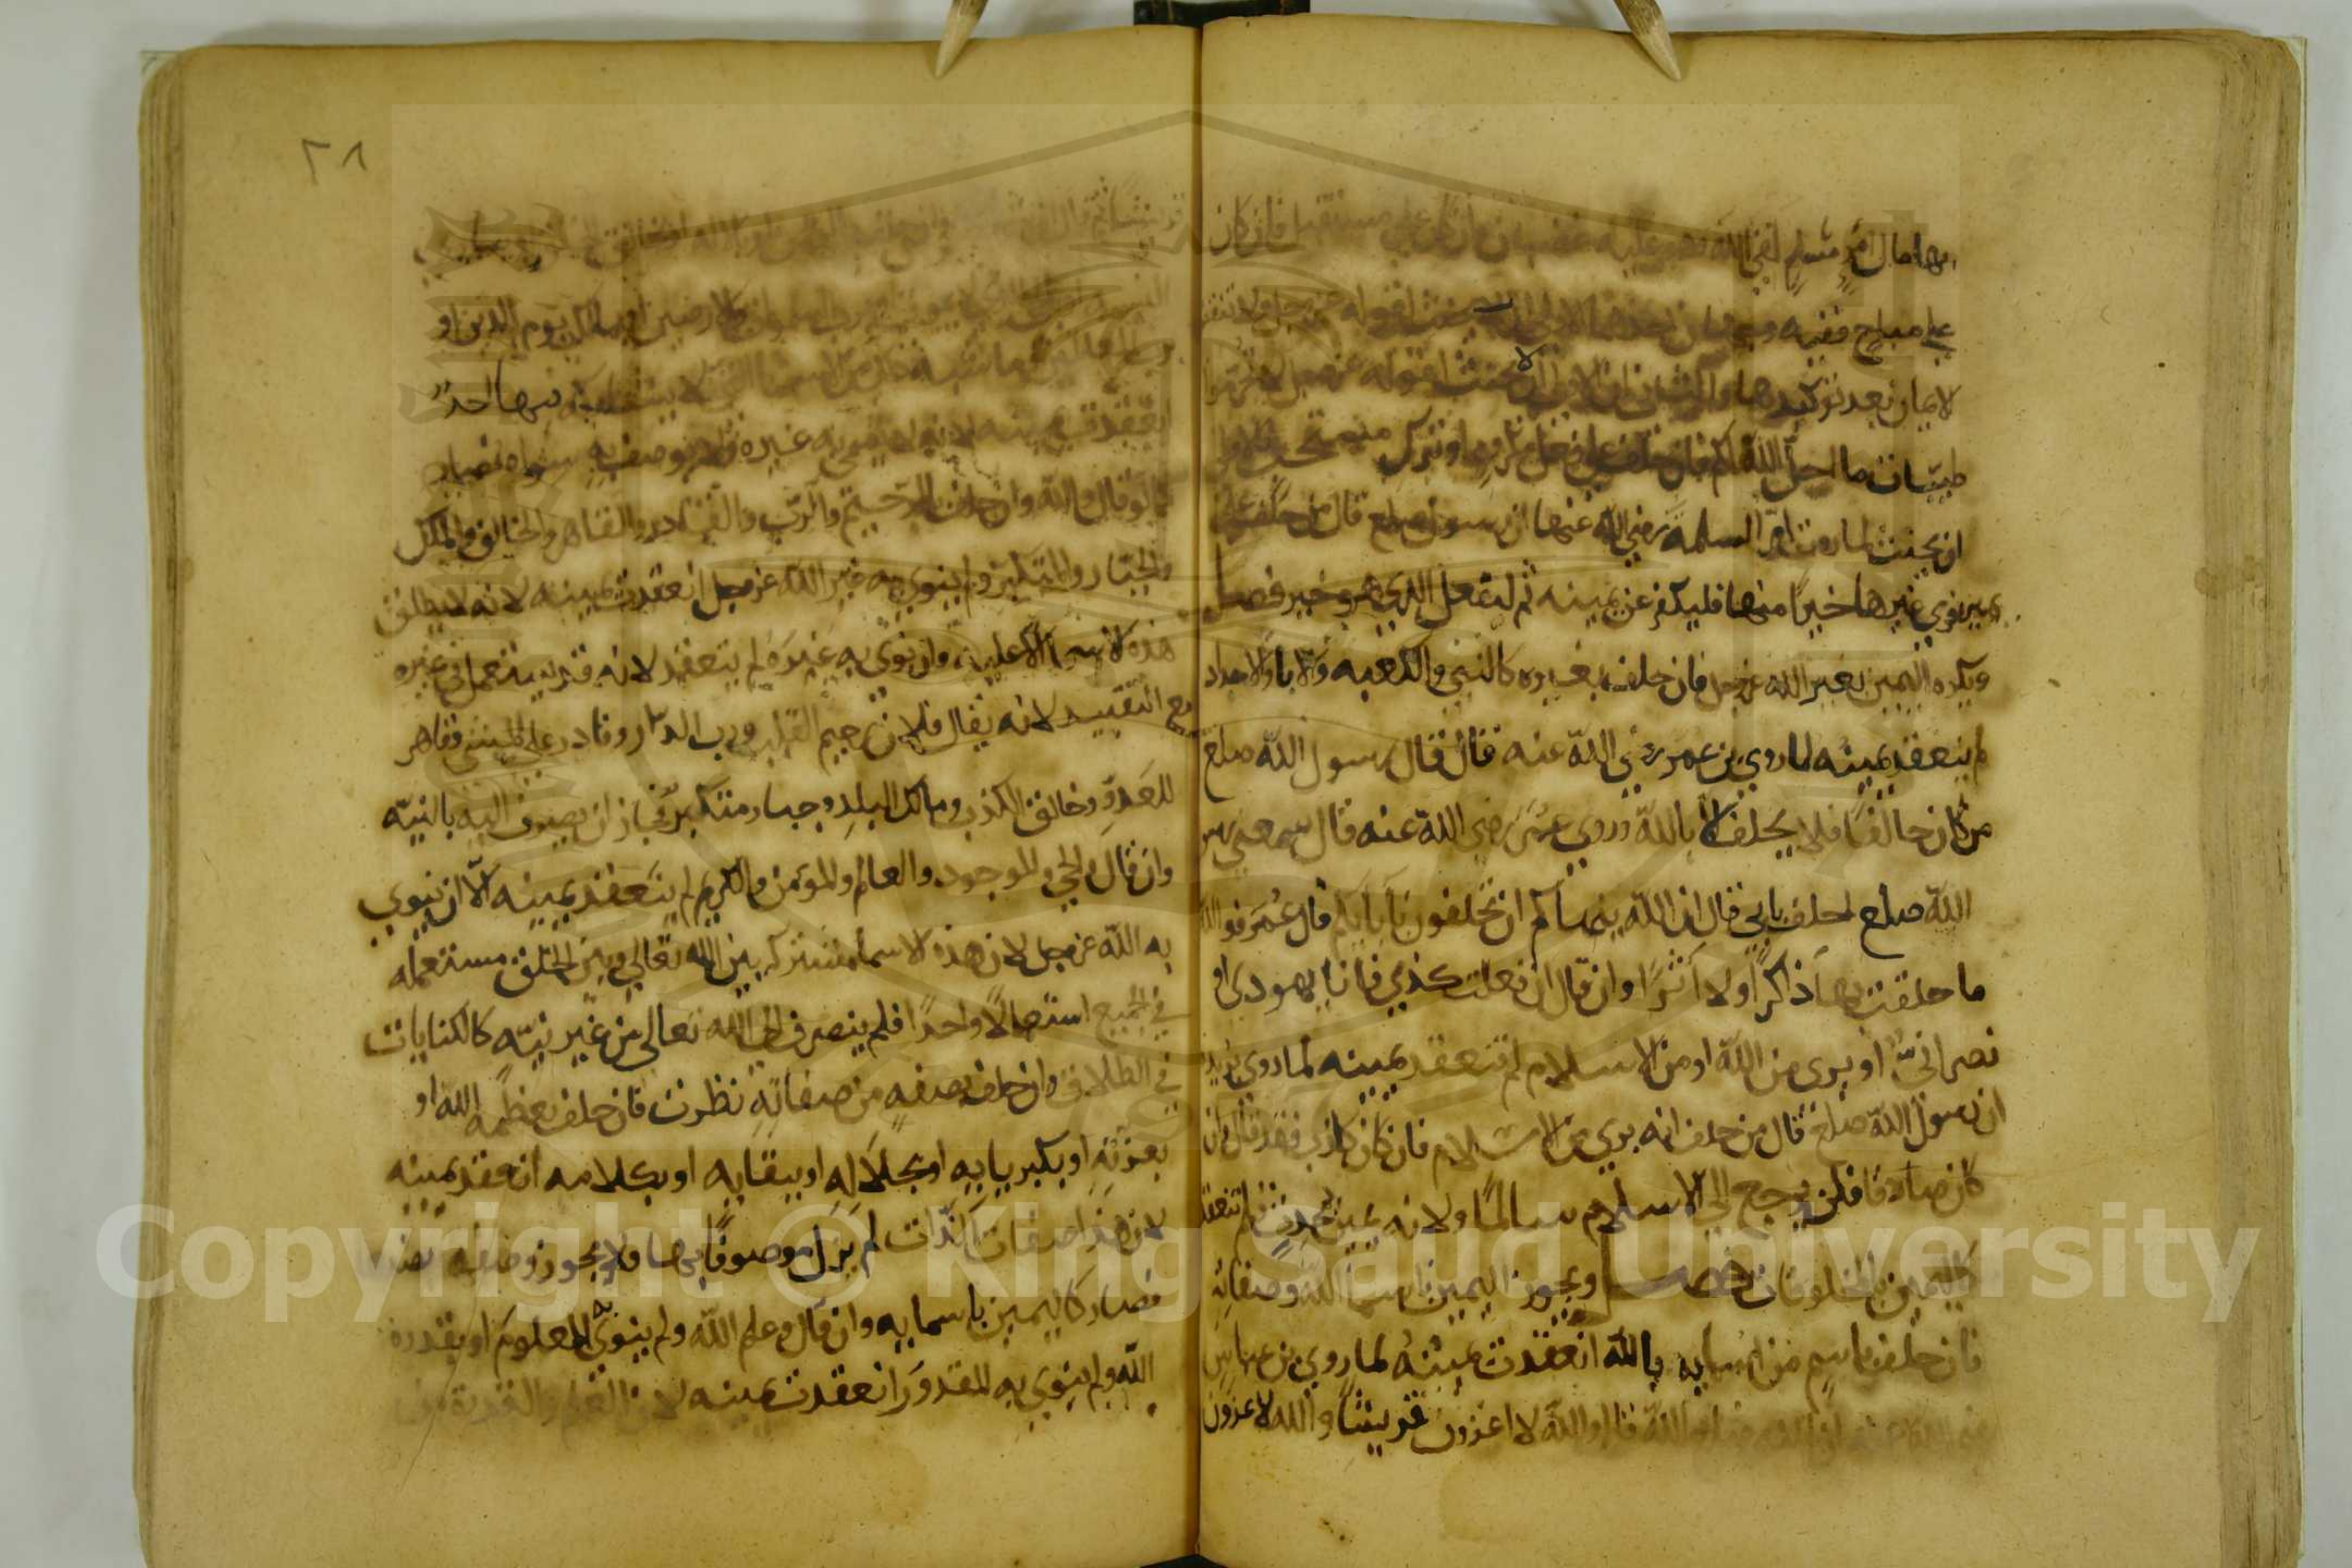 بها مال امرء مسلم لقي الله وهو عليه غضبان وان كان على مستقبل فان كان
على مباح ففيه وجهان احدهما الاولى ان لا يحنث لقوله عز وجل ولا تنقضوا
الايمان بعد توكيدها والثاني ان الاولى ان يحنث لقوله عز وجل لا تحرموا
طيبات ما احل الله لكم فان حلف على فعل مكروه او ترك مستحب فالاولى
ان يحنث لما روت ام السلمة رضي الله عنها ان رسول صلع قال من حلف على
يمين فرى غيرها خيرا منها فليكفر عن يمينه ثم ليفعل الذي هو خير فصل
ويكره اليمين بغير الله عز وجل فان حلف بغيره كالنبي والكعبه والابا والاجداد
لم ينعقد يمينه لما روي بن عمر رضي الله عنه قال قال رسول الله صلع
من كان حالفا فلا يحلف الا بالله وروي عمر رضي الله عنه قال سمعني رسول
الله صلع احلف بابي فقال ان الله ينهاكم ان تحلفون بآبايكم قال عمر فوالله
ما حلفت بها ذاكرا ولا آثرا وان قال ان فعلت كذي فانا يهودي او
نصراني او بري من الله او من الاسلام لم تنعقد يمينه لما روي بريده
ان رسول الله صلع قال من حلف انه بري من الاسلام فان كان كاذبا فقد قال وان
كان صادقا فلن يرجع الى الاسلام سالما ولانه يمين بمحدث فلم تنعقد
كاليمين بالمخلوقات فصل ويجوز اليمين باسما الله وصفاته
فان حلف باسم من اسمايه بالله انعقدت يمينه لما روي بن عباس
رضي الله عنه ان النبي صلع قال والله لا اغزون قريشا والله لاغزون
٢٨
قريشا ثم قال ان شا الله وان حلف
رب السموات والارضين او مالك يوم الدين او
رب العالمين وما اشبه ذلك من الاسما التي لا يشاركه فيها احد
انعقدت يمينه لانه لا يسمى به غيره ولا يوصف به سواه فصار
كما لو قال والله وان حلف بالرحيم والرب والقادر والقاهر والخالق والملك
والجبار والمتكبر ولم ينوي به غير الله عز وجل انعقدت يمينه لانه لا يطلق
هذه الاسما الا عليه وان نوى به غيره لم ينعقد لانه قد يستعمل في غيره
مع التقييد لانه يقال فلان رحيم القلب ورب الدار وقادر على المشي وقاهر
للعدو وخالق الكذب ومالك البلد وجبار متكبر فجاز ان يصرف اليه بالنيه
وان قال والحي والموجود والعالم والمؤمن والكريم لم ينعقد يمينه الا ان ينوي
به الله عز وجل لان هذه الاسما مشتركه بين الله تعالى وبين الخلق مستعمله
في الجميع استعمالا واحدا فلم ينصرف الى الله تعالى من غير نيه كالكنايات
في الطلاق وان حلف بصفه من صفاته نظرت فان حلف بعظمه الله او
بعزته او بكبريايه او بجلاله او ببقايه او بكلامه انعقد يمينه
لان هذا صفات الذات لم يزل موصوفا بها ولا يجوز وصفه بضدها
فصار كاليمين باسمايه وان قال وعلم الله ولم ينوي به المعلوم او بقدره
الله ولم ينوي به المقدور انعقدت يمينه لان العلم والقدرة من